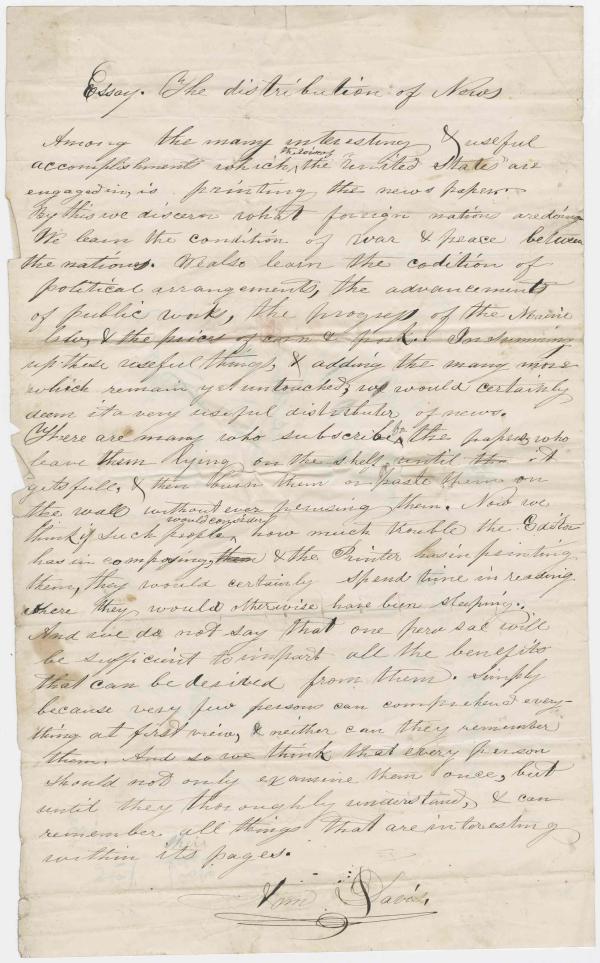 Essay. The distribution of News
Among the many interesting & useful
accomplishments which the "United States" are
engaged in, is printing the news paper.
By this we discern what foreign nations are doing
We learn the condition of war & peace between
the nations. We also learn the codition of
political arrangements, the advancements
of public work, the progress of the
law, & the prices of corn & pork. In summing
up these useful things, & adding the many more
which remain yet untouched, we would certainly
deem it a very useful distributer of news.
There are many who subscribe for the papers, who
leave them lying on the shelf until the it
gets full, & then burn them or paste them on
the wall without ever perusing them. Now we
think if such people would consider how much trouble the Editor
has in composing them & the Printer has in printing
them, they would certainly spend time in reading
where they would otherwise have been sleeping.
And we do not say that one perusal will
be sufficient to impart all the benefits
that can be desired from them. Simply
because very few persons can comprehend every-
thing at first view, & neither can they remember
them. And so we think that every person
should not only examine them once, but
until they thoroughly understand, & can
remember all things that are interesting
within its pages.
Wm Davis.